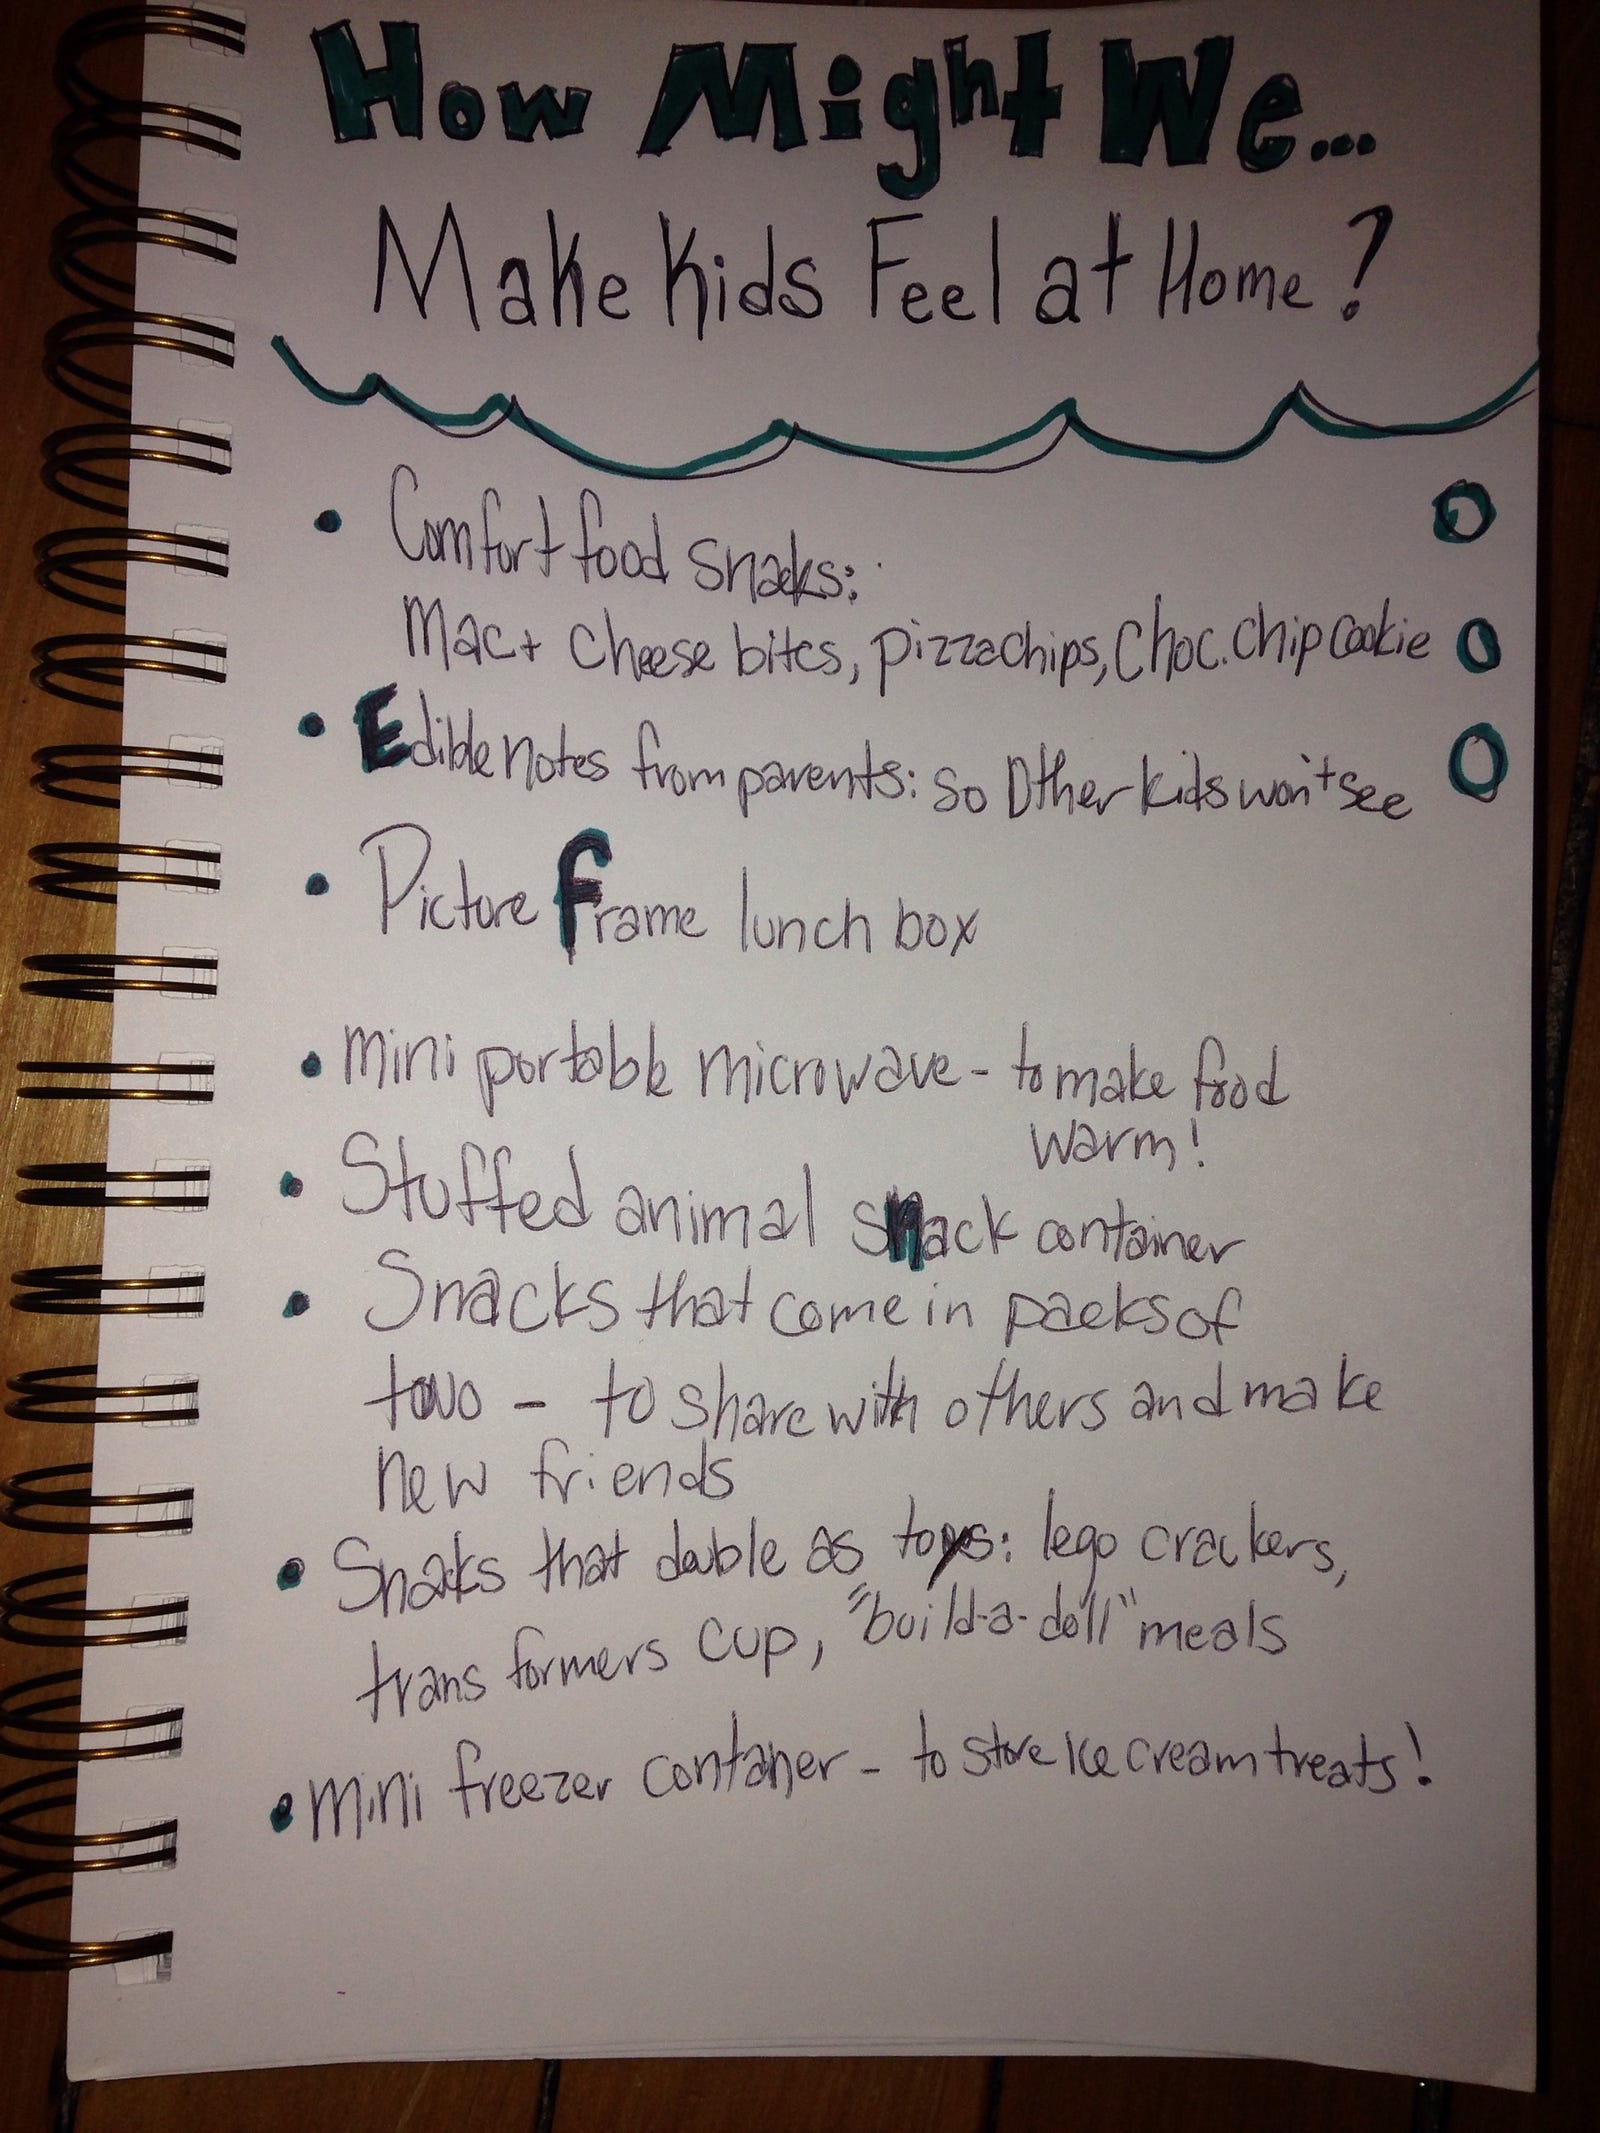 How Might We...
Make Kids Feel at Home?
• Comfort food snaks:
Mac + cheese bites, pizza chips, Choc. chip cookie
• Edible notes from parents: so Other kids won't see
• Picture frame lunch box
• mini portable microwave - to make food
warm!
• Stuffed animal snack container
• Snacks that come in packs of
two - to share with others and make
new friends
• Snaks that double as toys: lego crackers,
transformers cup, "build-a-doll" meals
• mini freezer container - to store ice cream treats!